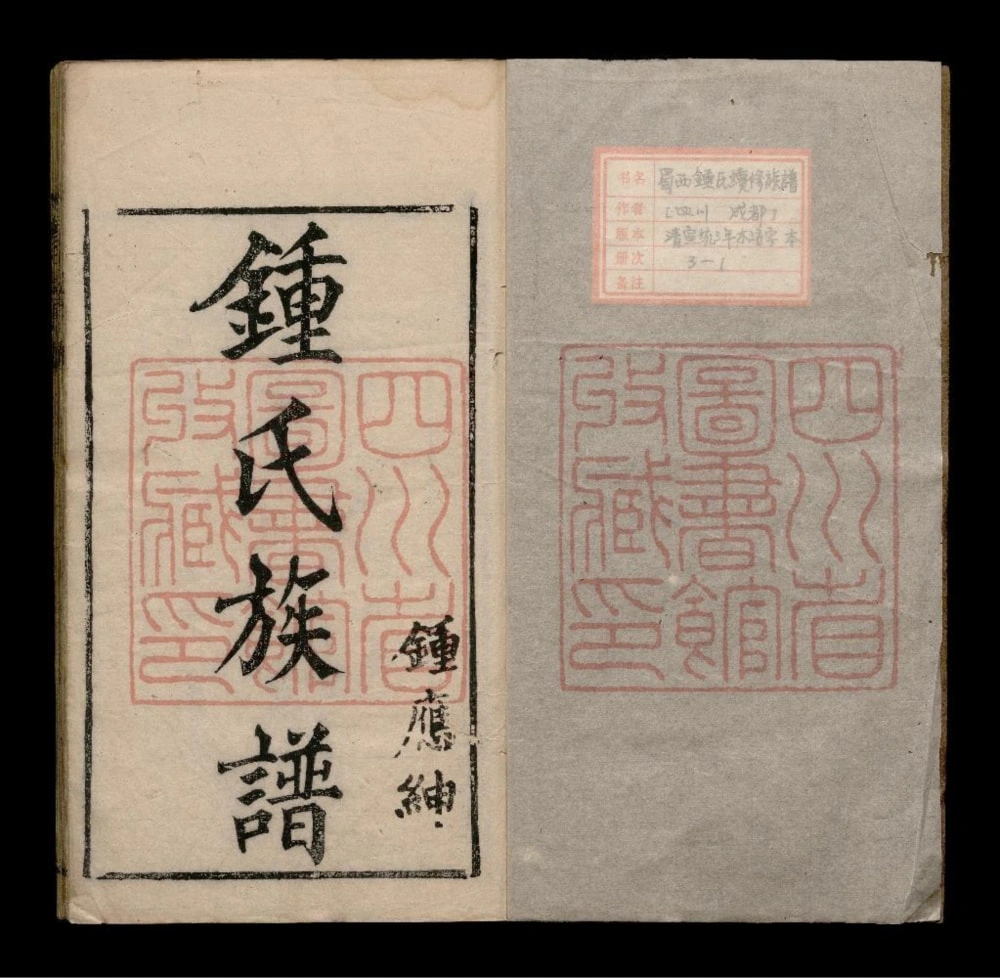 书名 蜀西鍾氏續修族譜
作者 [四川 成都]
版本 清宣统三年木活字本
册次 3-1
备注
四川省
圖書館
收藏印
鍾應紳
鍾氏族譜
四川省
圖書館
收藏印